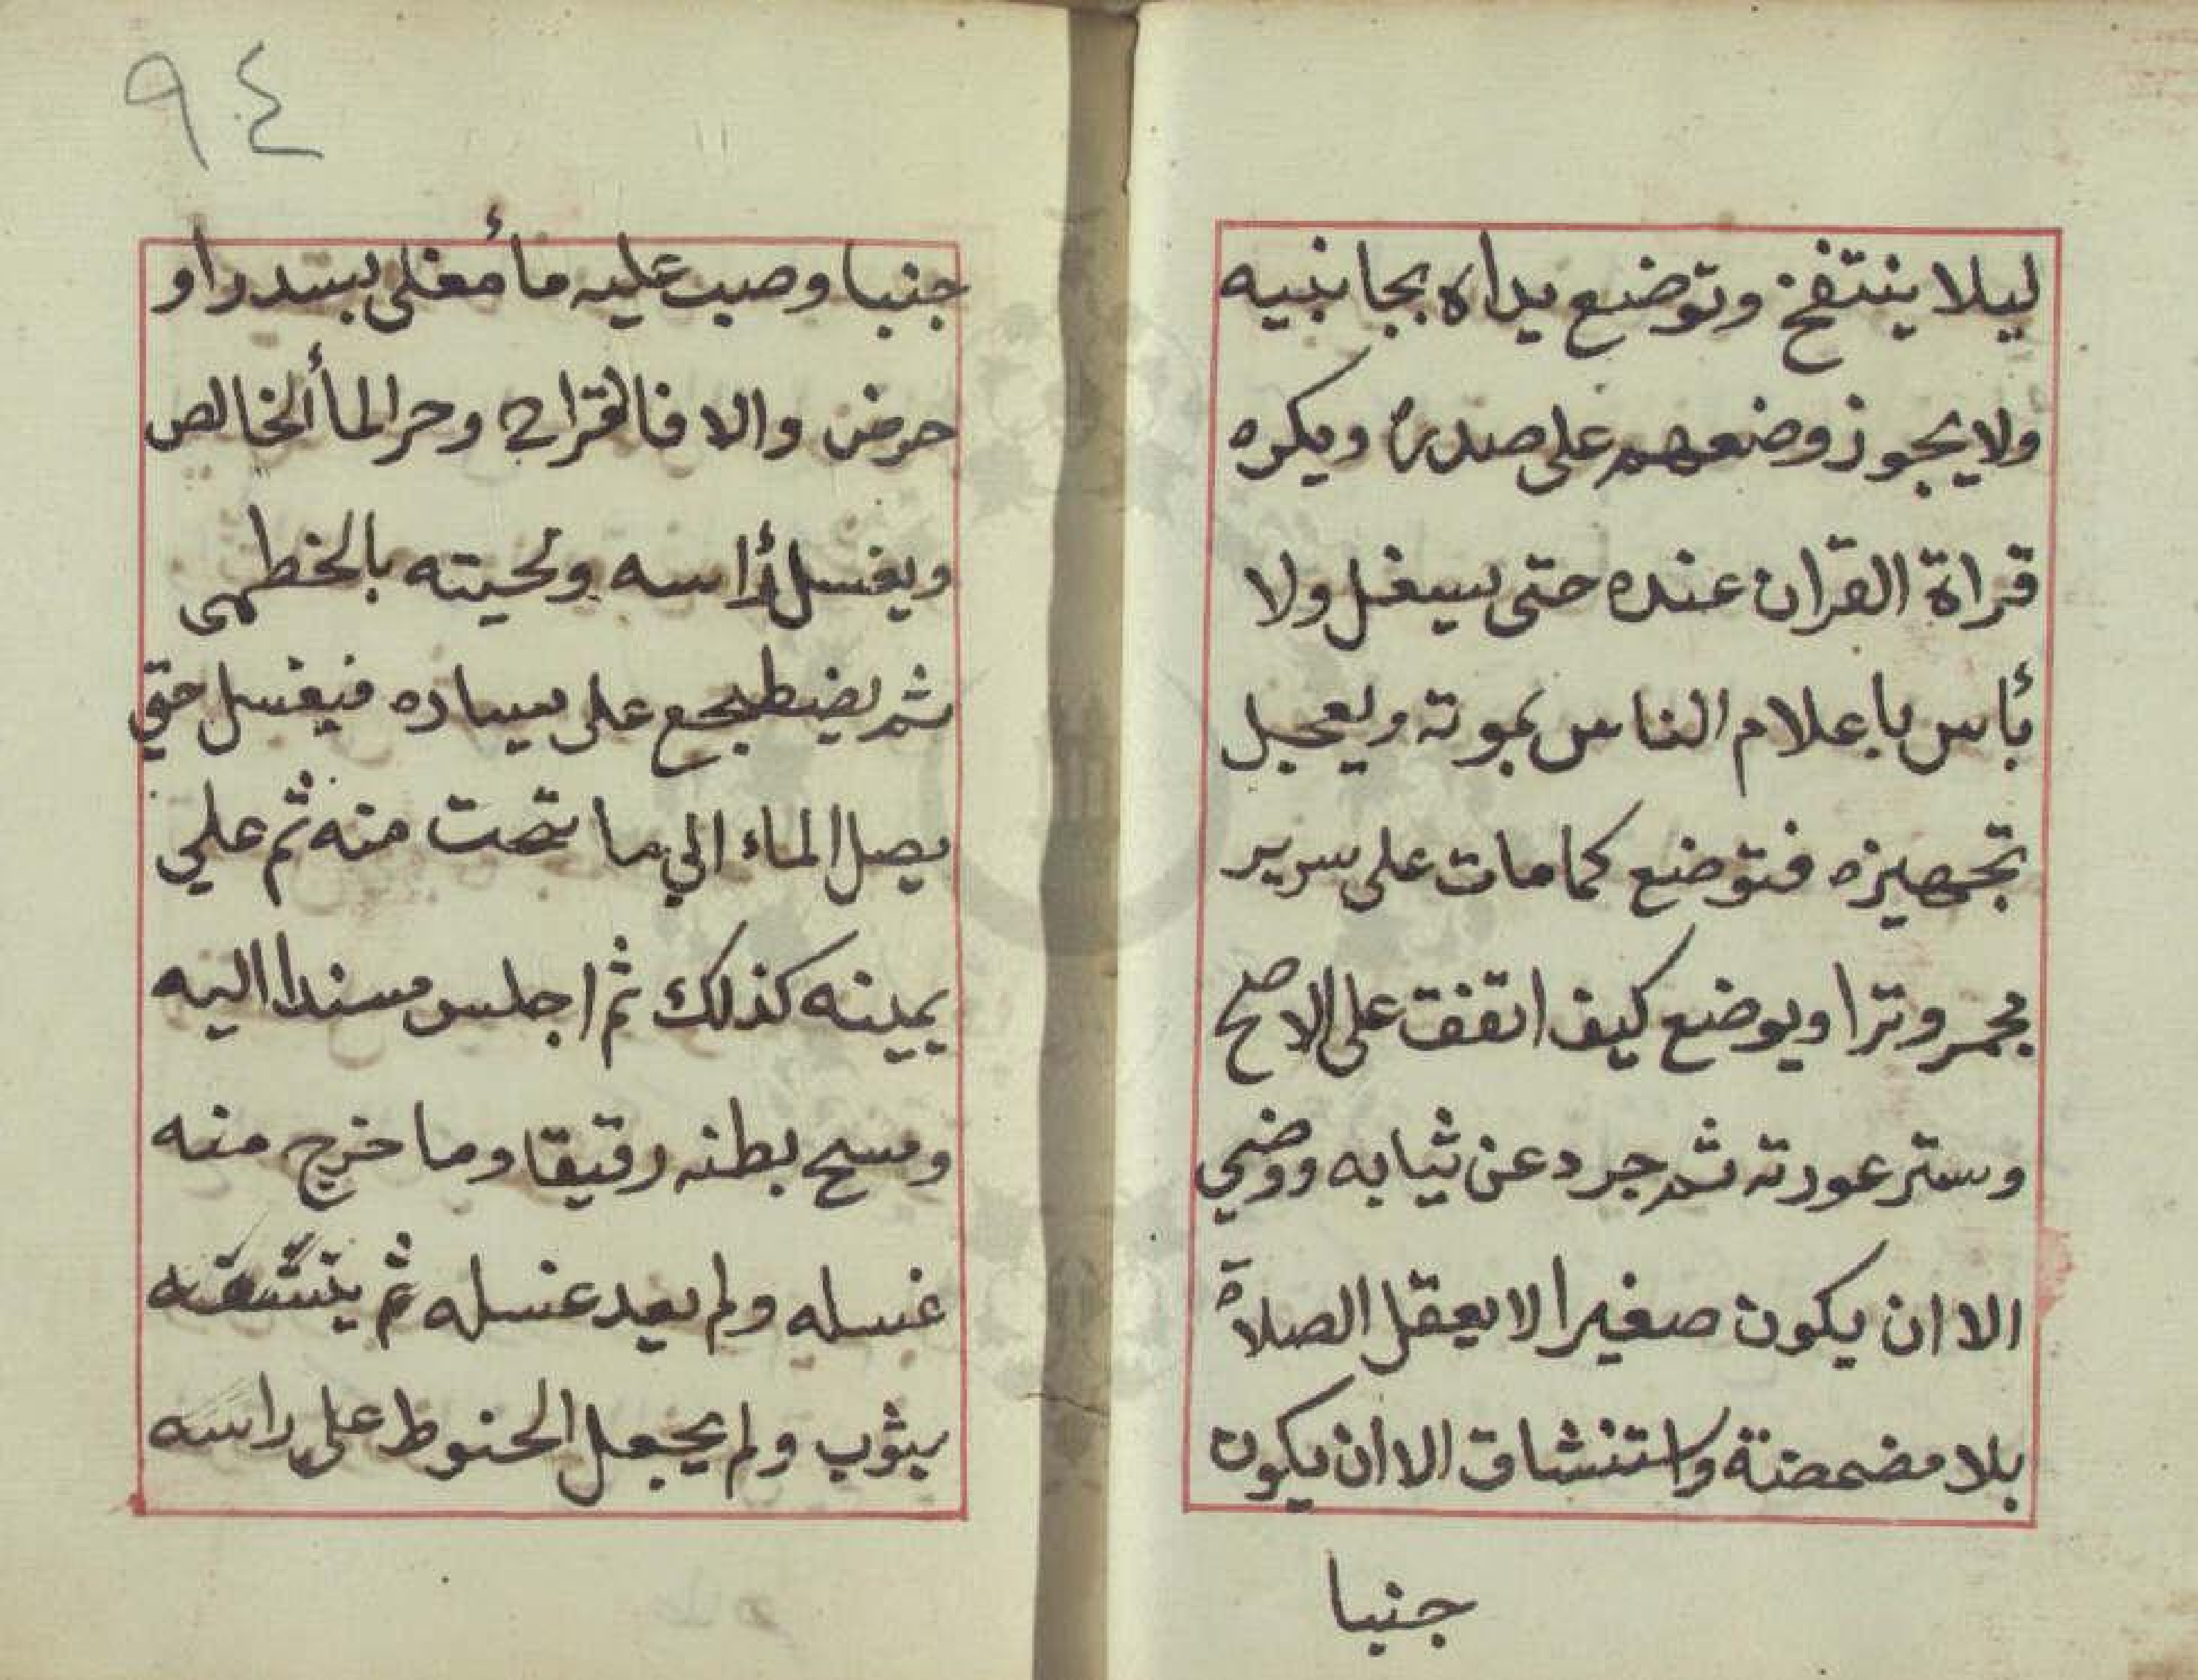 ليلا ينتفخ وتوضع يداه بجانبيه
ولا يجوز وضعهم على صدره ويكره
قراة القران عنده حتى يسغل ولا
بأس باعلام الناس بموته ويعجل
تجهيزه فتوضع كما مات على سرير
مجمر وترا ويوضع كيف اتفقت على الاصح
وستر عورته ثم جرد عن ثيابه ووضي
الا ان يكون صغيرا لا يعقل الصلاة
بلا مضمضة واستنشاق الا ان يكون
جنبا
٩٤
جنبا وصب عليه مأ مغلى بسدر او
حرض والا فالقراح وحر المأ الخالص
ويغسل رأسه ولحيته بالخطمى
ثم يضطجع على يساره فيغسل حتي
يصل الماء الي ما تحت منه ثم علي
يمينه كذلك ثم اجلس مسندا اليه
ومسح بطنه رقيقا وما خرج منه
غسله ولم يعيد غسله ثم
بثوب ولم يجعل الحنوط على راسه